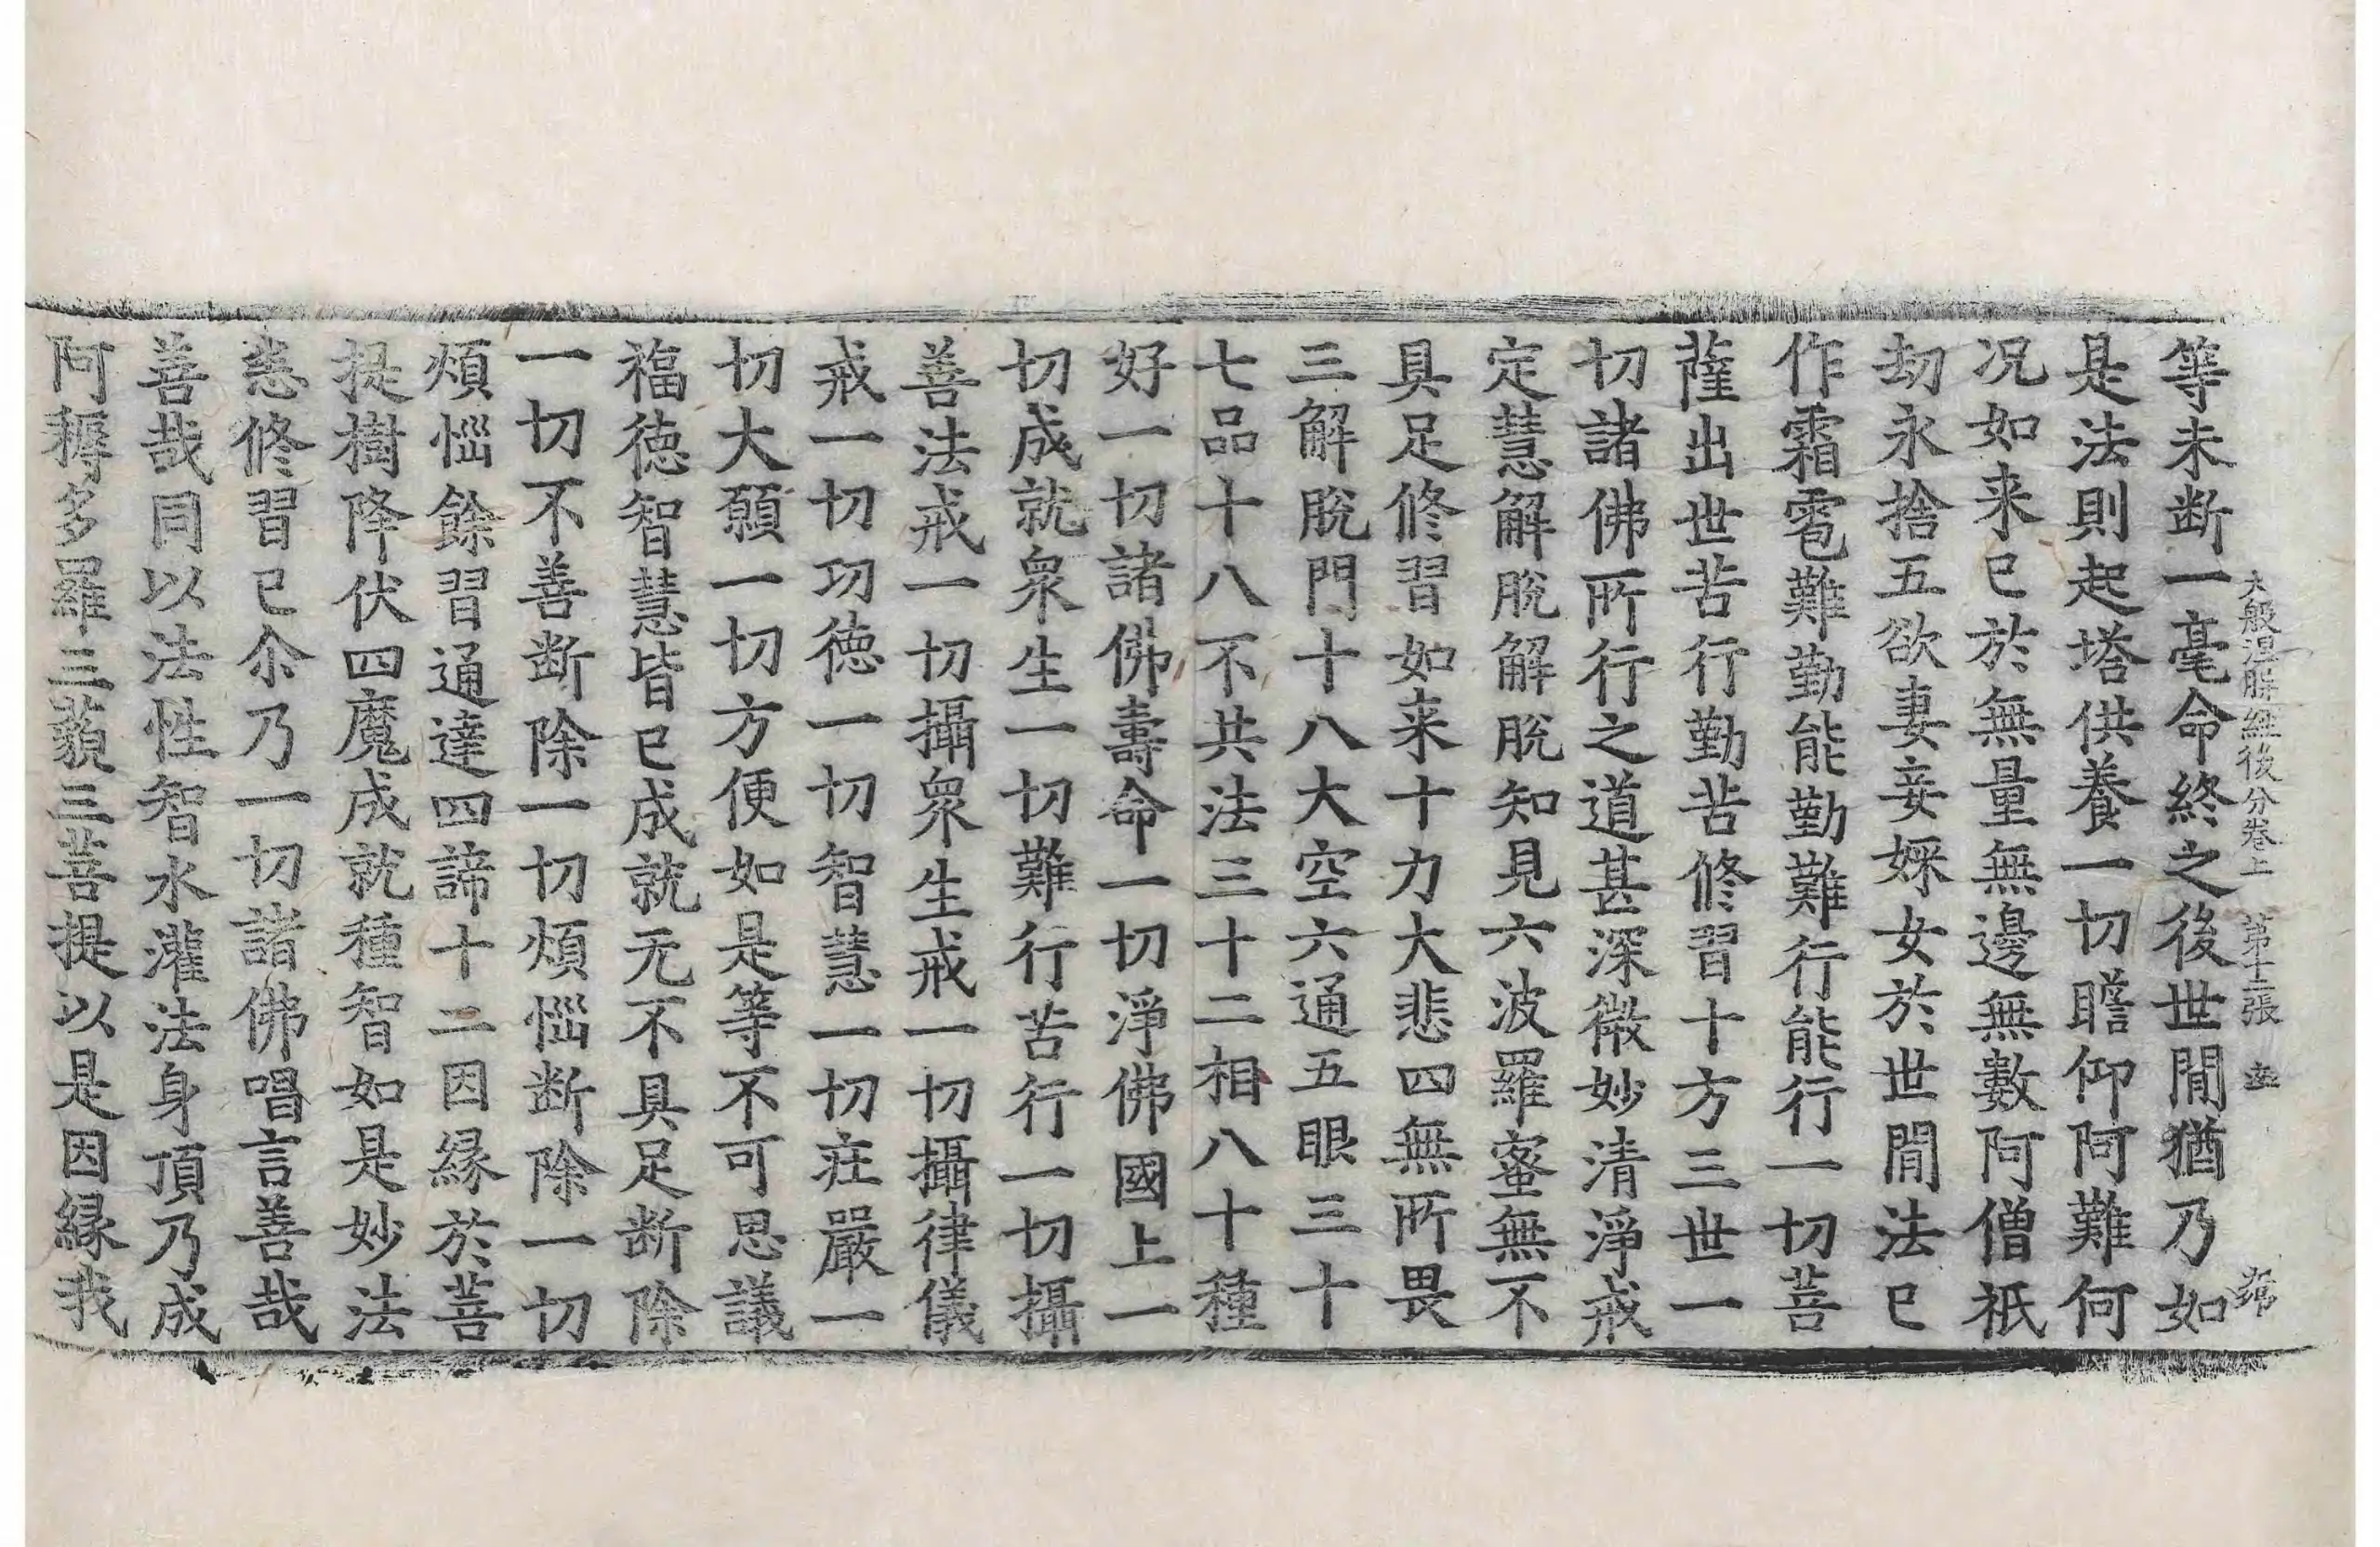 大般涅槃經後分卷上　第十二張
等未断一毫命終之後世閒猶乃如
是法則起塔供養一切瞻仰阿難何
况如来已於無量無邊無數阿僧祇
劫永捨五欲妻妾婇女於世閒法已
作霜雹難勤能勤難行能行一切菩
薩出世苦行勤苦修習十方三世一
切諸佛所行之道甚深微妙清淨戒
定慧解脫解脫知見六波羅蜜無不
具足修習如来十力大悲四無所畏
三解脫門十八大空六通五眼三十
七品十八不共法三十二相八十種
好一切諸佛壽命一切淨佛國土一
切成就衆生一切難行苦行一切攝
善法戒一切攝衆生戒一切攝律儀
戒一切功徳一切智慧一切莊嚴一
切大願一切方便如是等不可思議
福徳智慧皆已成就无不具足断除
一切不善断除一切煩惱断除一切
煩惱餘習通達四諦十二因緣於菩
提樹降伏四魔成就種智如是妙法
悉修習已尒乃一切諸佛唱言善哉
善哉同以法性智水灌法身頂乃成
阿耨多羅三藐三菩提以是因緣我